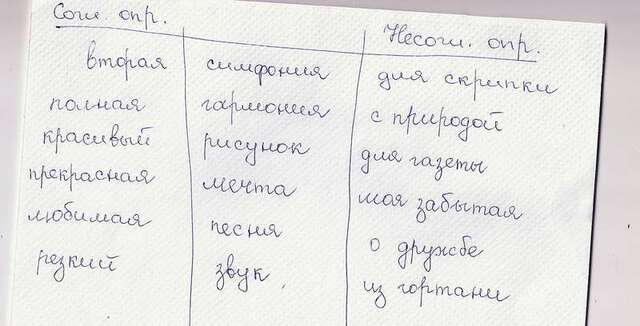 Согл. опр. Несогл. опр.
вторая симфония для скрипки
полная гармония с природой
красивый рисунок для газеты
прекрасная мечта моя забытая
любимая песня о дружбе
резкий звук из гортани